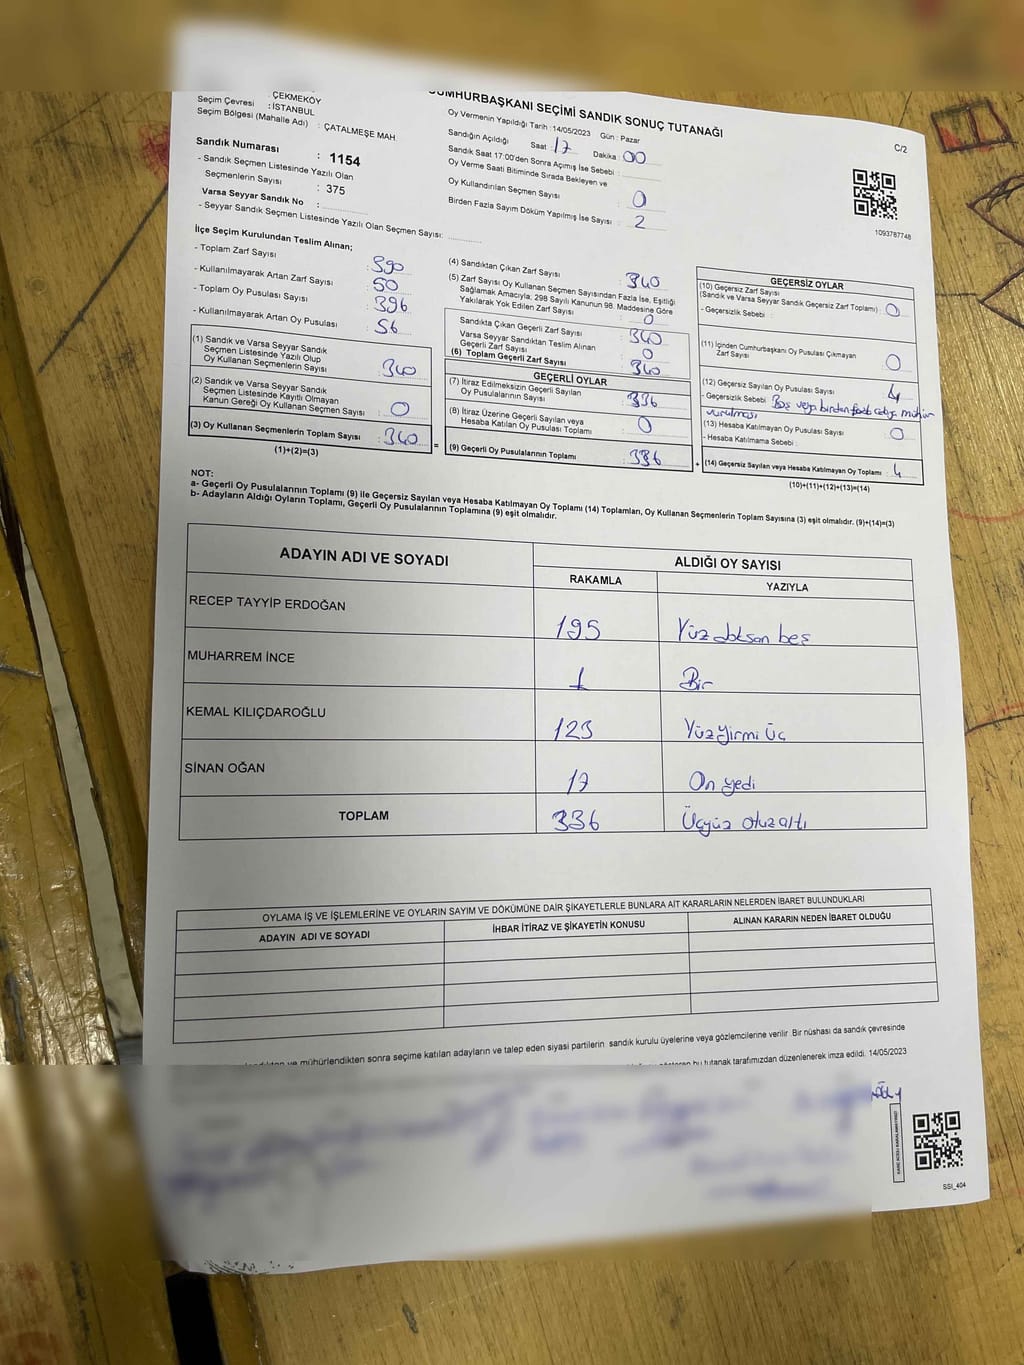 ÇEKMEKÖY
Seçim Çevresi : İSTANBUL
Seçim Bölgesi (Mahalle Adı) : ÇATALMEŞE MAH
Sandık Numarası : 1154
- Sandık Seçmen Listesinde Yazılı Olan
Seçmenlerin Sayısı : 375
Varsa Seyyar Sandık No :
- Seyyar Sandık Seçmen Listesinde Yazılı Olan Seçmen Sayısı:
CUMHURBAŞKANI SEÇİMİ SANDIK SONUÇ TUTANAĞI
Oy Vermenin Yapıldığı Tarih : 14/05/2023 Gün : Pazar
Sandığın Açıldığı Saat : 17 Dakika : 00
Sandık Saat 17:00'den Sonra Açımış İse Sebebi :
Oy Verme Saati Bitiminde Sırada Bekleyen ve
Oy Kullandırılan Seçmen Sayısı : 0
Birden Fazla Sayım Döküm Yapılmış İse Sayısı : 2
C/2
1093787748
İlçe Seçim Kurulundan Teslim Alınan;
- Toplam Zarf Sayısı : 390
- Kullanılmayarak Artan Zarf Sayısı : 50
- Toplam Oy Pusulası Sayısı : 396
- Kullanılmayarak Artan Oy Pusulası : 56
(1) Sandık ve Varsa Seyyar Sandık
Seçmen Listesinde Yazılı Olup
Oy Kullanan Seçmenlerin Sayısı : 340
(2) Sandık ve Varsa Seyyar Sandık
Seçmen Listesinde Kayıtlı Olmayan
Kanun Gereği Oy Kullanan Seçmen Sayısı : 0
(3) Oy Kullanan Seçmenlerin Toplam Sayısı : 340 =
(1)+(2)=(3)
(4) Sandıktan Çıkan Zarf Sayısı : 340
(5) Zarf Sayısı Oy Kullanan Seçmen Sayısından Fazla İse, Eşitliği
Sağlamak Amacıyla; 298 Sayılı Kanunun 98. Maddesine Göre
Yakılarak Yok Edilen Zarf Sayısı : 0
Sandıkta Çıkan Geçerli Zarf Sayısı : 340
Varsa Seyyar Sandıktan Teslim Alınan
Geçerli Zarf Sayısı : 0
(6) Toplam Geçerli Zarf Sayısı : 340
GEÇERLİ OYLAR
(7) İtiraz Edilmeksizin Geçerli Sayılan
Oy Pusulalarının Sayısı : 336
(8) İtiraz Üzerine Geçerli Sayılan veya
Hesaba Katılan Oy Pusulası Toplamı : 0
(9) Geçerli Oy Pusulalarının Toplamı : 336 +
GEÇERSİZ OYLAR
(10) Geçersiz Zarf Sayısı
(Sandık ve Varsa Seyyar Sandık Geçersiz Zarf Toplamı) : 0
- Geçersizlik Sebebi :
(11) İçinden Cumhurbaşkanı Oy Pusulası Çıkmayan
Zarf Sayısı : 0
(12) Geçersiz Sayılan Oy Pusulası Sayısı : 4
- Geçersizlik Sebebi : Boş veya birden fazla adaya mühür
vurulması
(13) Hesaba Katılmayan Oy Pusulası Sayısı : 0
- Hesaba Katılmama Sebebi :
(14) Geçersiz Sayılan veya Hesaba Katılmayan Oy Toplamı : 4
(10)+(11)+(12)+(13)=(14)
NOT:
a- Geçerli Oy Pusulalarının Toplamı (9) ile Geçersiz Sayılan veya Hesaba Katılmayan Oy Toplamı (14) Toplamları, Oy Kullanan Seçmenlerin Toplam Sayısına (3) eşit olmalıdır. (9)+(14)=(3)
b- Adayların Aldığı Oyların Toplamı, Geçerli Oy Pusulalarının Toplamına (9) eşit olmalıdır.
ADAYIN ADI VE SOYADI
ALDIĞI OY SAYISI
RAKAMLA YAZIYLA
RECEP TAYYİP ERDOĞAN 195 Yüz doksan beş
MUHARREM İNCE 1 Bir
KEMAL KILIÇDAROĞLU 123 Yüz Yirmi Üç
SİNAN OĞAN 17 On yedi
TOPLAM 336 Üçyüz otuz altı
OYLAMA İŞ VE İŞLEMLERİNE VE OYLARIN SAYIM VE DÖKÜMÜNE DAİR ŞİKAYETLERLE BUNLARA AİT KARARLARIN NELERDEN İBARET BULUNDUKLARI
ADAYIN ADI VE SOYADI İHBAR İTİRAZ VE ŞİKAYETİN KONUSU ALINAN KARARIN NEDEN İBARET OLDUĞU
ve mühürlendikten sonra seçime katılan adayların ve talep eden siyasi partilerin sandık kurulu üyelerine veya gözlemcilerine verilir. Bir nüshası da sandık çevresinde
bu tutanak tarafımızdan düzenlenerek imza edildi. 14/05/2023
SSI_404